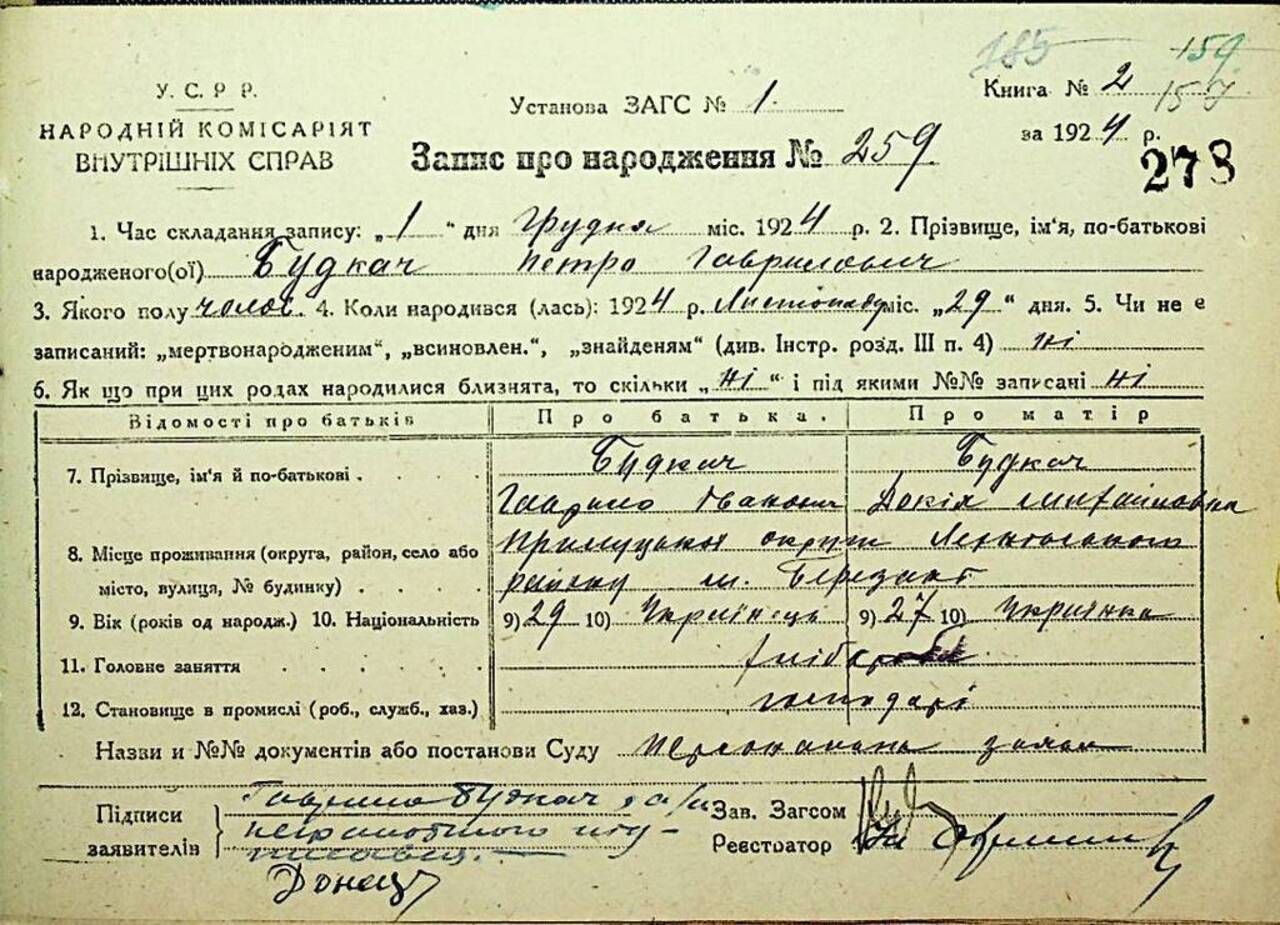 185 159
У. С. Р Р. Установа ЗАГС № 1. Книга № 2 157
НАРОДНІЙ КОМІСАРІЯТ за 1924 р.
ВНУТРІШНІХ СПРАВ Запис про народження № 259. 273
1. Час складання запису: „1“ дня Грудня міс. 1924 р. 2. Прізвище, ім'я, по-батькові
народженого(ої) Будкач Петро Гаврилович
3. Якого полу чолов. 4. Коли народився (лась): 1924 р. Листопаду міс. „29“ дня. 5. Чи не є
записаний: „мертвонародженим“, „всиновлен.“, „знайденям“ (див. Інстр. розд. III п. 4) ні
6. Як що при цих родах народилися близнята, то скільки „ні“ і під якими №№ записані ні
Відомості про батьків Про батька. Про матір
7. Прізвище, ім'я й по-батькові . . . . Будкач Будкач
Гаврило Іванович Докія Михайловна
8. Місце проживання (округа, район, село або Прилуцької округи
місто, вулиця, № будинку) . . . . району м.
9. Вік (років од народж.) 10. Національність 9) 29 10) Українець 9) 27 10) Українка
11. Головне заняття . . . . . хлібороби
12. Становище в промислі (роб., служб., хаз.) господарі
Назви и №№ документів або постанови Суду
Підписи Гаврило Будкач, а за Зав. Загсом
заявителів неграмотного під- Реєстратор
писався.
Донец